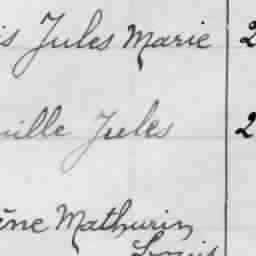 is Jules Marie 2
ille Jules 2
ène Mathurin
Louis